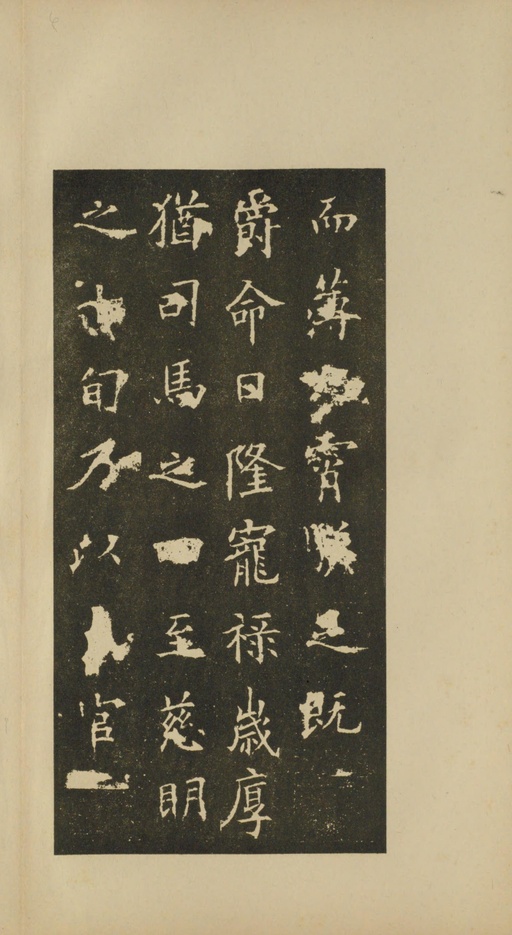 而薄霄之既
爵命日隆寵祿歲厚
猶司馬之至慈明
之旬乃以官